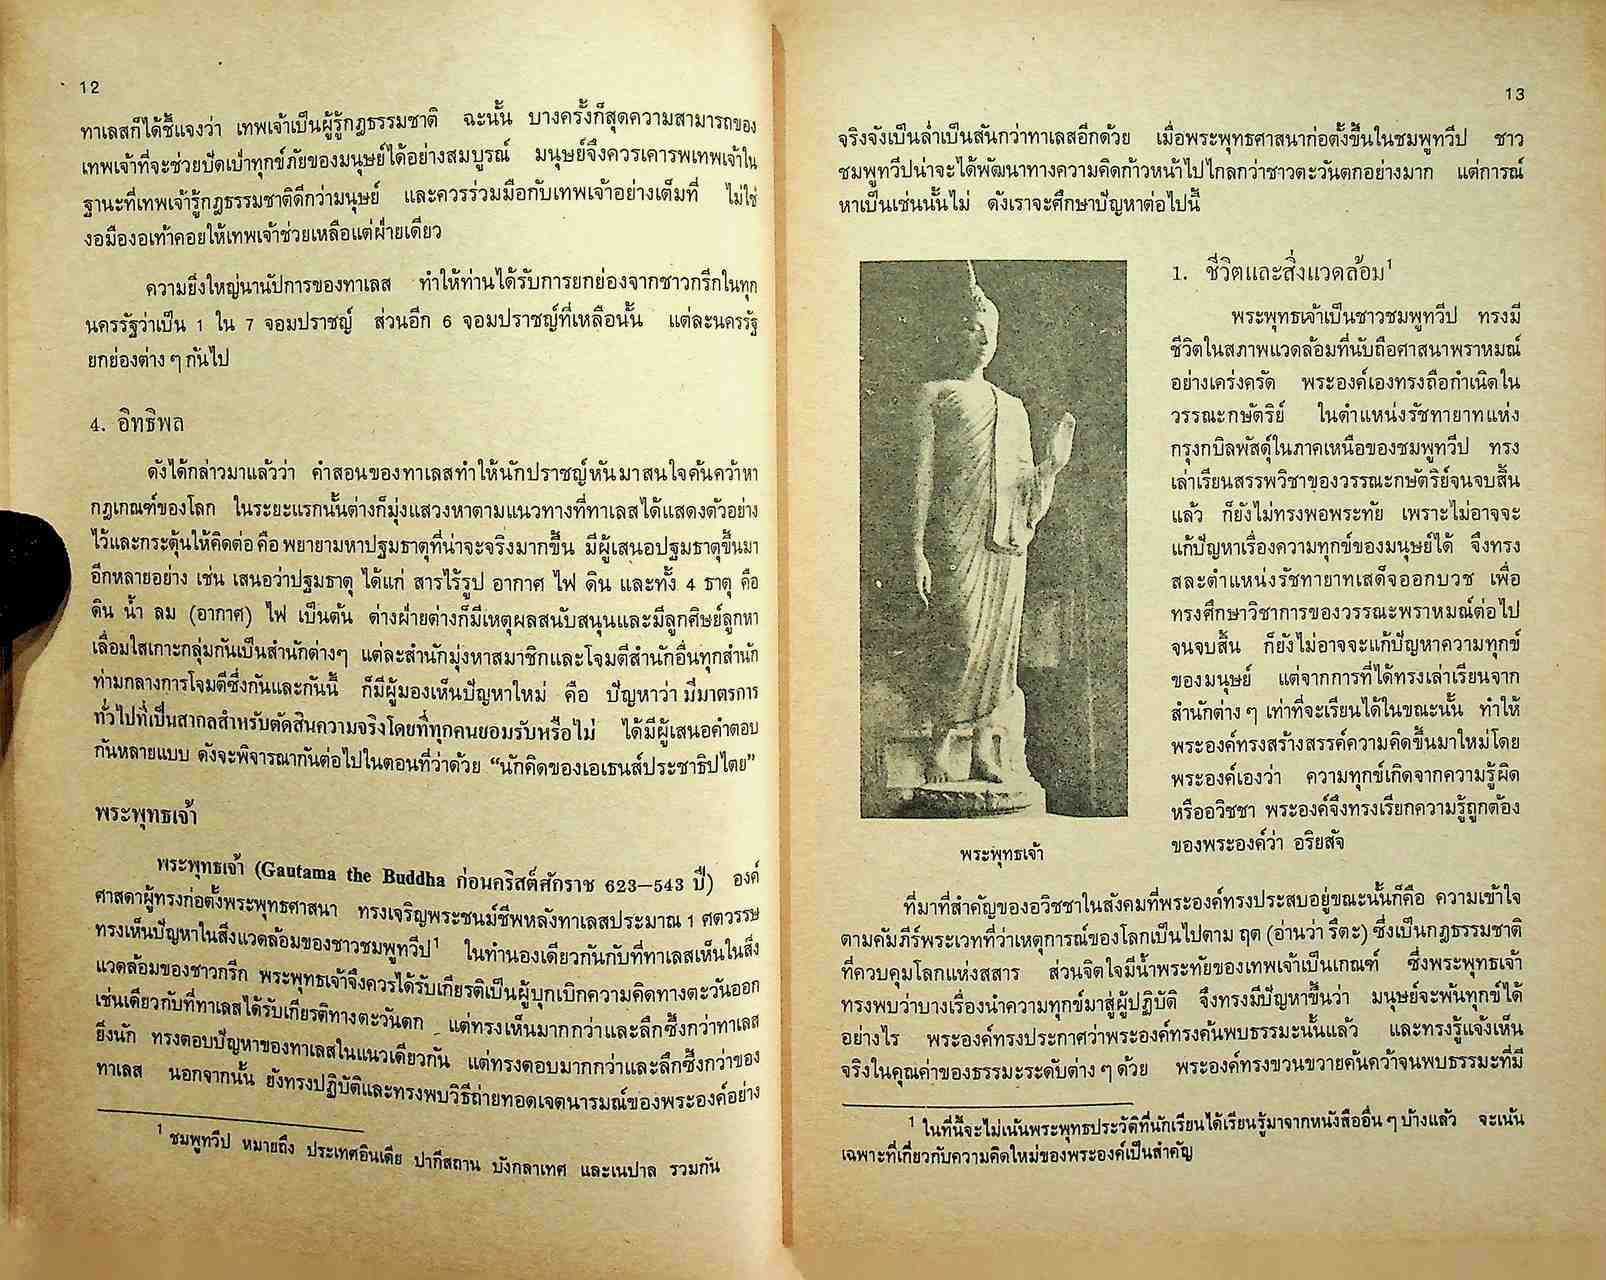 12
ทาเลสก็ได้ชี้แจงว่า เทพเจ้าเป็นผู้รู้กฎธรรมชาติ ฉะนั้น บางครั้งก็สุดความสามารถของ
เทพเจ้าที่จะช่วยปัดเป่าทุกข์ภัยของมนุษย์ได้อย่างสมบูรณ์ มนุษย์จึงควรเคารพเทพเจ้าใน
ฐานะที่เทพเจ้ารู้กฎธรรมชาติดีกว่ามนุษย์ และควรร่วมมือกับเทพเจ้าอย่างเต็มที่ ไม่ใช่
งอมืองอเท้าคอยให้เทพเจ้าช่วยเหลือแต่ฝ่ายเดียว
ความยิ่งใหญ่นานัปการของทาเลส ทำให้ท่านได้รับการยกย่องจากชาวกรีกในทุก
นครรัฐว่าเป็น 1 ใน 7 จอมปราชญ์ ส่วนอีก 6 จอมปราชญ์ที่เหลือนั้น แต่ละนครรัฐ
ยกย่องต่าง ๆ กันไป
4. อิทธิพล
ดังได้กล่าวมาแล้วว่า คำสอนของทาเลสทำให้นักปราชญ์หันมาสนใจค้นคว้าหา
กฎเกณฑ์ของโลก ในระยะแรกนั้นต่างก็มุ่งแสวงหาตามแนวทางที่ทาเลสได้แสดงตัวอย่าง
ไว้และกระตุ้นให้คิดต่อ คือ พยายามหาปฐมธาตุที่น่าจะจริงมากขึ้น มีผู้เสนอปฐมธาตุขึ้นมา
อีกหลายอย่าง เช่น เสนอว่าปฐมธาตุ ได้แก่ สารไร้รูป อากาศ ไฟ ดิน และทั้ง 4 ธาตุ คือ
ดิน น้ำ ลม (อากาศ) ไฟ เป็นต้น ต่างฝ่ายต่างก็มีเหตุผลสนับสนุนและมีลูกศิษย์ลูกหา
เลื่อมใสเกาะกลุ่มกันเป็นสำนักต่างๆ แต่ละสำนักมุ่งหาสมาชิกและโจมตีสำนักอื่นทุกสำนัก
ท่ามกลางการโจมตีซึ่งกันและกันนี้ ก็มีผู้มองเห็นปัญหาใหม่ คือ ปัญหาว่า มีมาตรการ
ทั่วไปที่เป็นสากลสำหรับตัดสินความจริงโดยที่ทุกคนยอมรับหรือไม่ ได้มีผู้เสนอคำตอบ
กันหลายแบบ ดังจะพิจารณากันต่อไปในตอนที่ว่าด้วย “นักคิดของเอเธนส์ประชาธิปไตย”
พระพุทธเจ้า
พระพุทธเจ้า (Gautama the Buddha ก่อนคริสต์ศักราช 623–543 ปี) องค์
ศาสดาผู้ทรงก่อตั้งพระพุทธศาสนา ทรงเจริญพระชนม์ชีพหลังทาเลสประมาณ 1 ศตวรรษ
ทรงเห็นปัญหาในสิ่งแวดล้อมของชาวชมพูทวีป¹ ในทำนองเดียวกันกับที่ทาเลสเห็นในสิ่ง
แวดล้อมของชาวกรีก พระพุทธเจ้าจึงควรได้รับเกียรติเป็นผู้บุกเบิกความคิดทางตะวันออก
เช่นเดียวกับที่ทาเลสได้รับเกียรติทางตะวันตก แต่ทรงเห็นมากกว่าและลึกซึ้งกว่าทาเลส
ยิ่งนัก ทรงตอบปัญหาของทาเลสในแนวเดียวกัน แต่ทรงตอบมากกว่าและลึกซึ้งกว่าของ
ทาเลส นอกจากนั้น ยังทรงปฏิบัติและทรงพบวิธีถ่ายทอดเจตนารมณ์ของพระองค์อย่าง
¹ ชมพูทวีป หมายถึง ประเทศอินเดีย ปากีสถาน บังกลาเทศ และเนปาล รวมกัน
13
จริงจังเป็นล่ำเป็นสันกว่าทาเลสอีกด้วย เมื่อพระพุทธศาสนาก่อตั้งขึ้นในชมพูทวีป ชาว
ชมพูทวีปน่าจะได้พัฒนาทางความคิดก้าวหน้าไปไกลกว่าชาวตะวันตกอย่างมาก แต่การณ์
หาเป็นเช่นนั้นไม่ ดังเราจะศึกษาปัญหาต่อไปนี้
1. ชีวิตและสิ่งแวดล้อม¹
พระพุทธเจ้าเป็นชาวชมพูทวีป ทรงมี
ชีวิตในสภาพแวดล้อมที่นับถือศาสนาพราหมณ์
อย่างเคร่งครัด พระองค์เองทรงถือกำเนิดใน
วรรณะกษัตริย์ ในตำแหน่งรัชทายาทแห่ง
กรุงกบิลพัสดุ์ในภาคเหนือของชมพูทวีป ทรง
เล่าเรียนสรรพวิชาของวรรณะกษัตริย์จนจบสิ้น
แล้ว ก็ยังไม่ทรงพอพระทัย เพราะไม่อาจจะ
แก้ปัญหาเรื่องความทุกข์ของมนุษย์ได้ จึงทรง
สละตำแหน่งรัชทายาทเสด็จออกบวช เพื่อ
ทรงศึกษาวิชาการของวรรณะพราหมณ์ต่อไป
จนจบสิ้น ก็ยังไม่อาจจะแก้ปัญหาความทุกข์
ของมนุษย์ แต่จากการที่ได้ทรงเล่าเรียนจาก
สำนักต่าง ๆ เท่าที่จะเรียนได้ในขณะนั้น ทำให้
พระองค์ทรงสร้างสรรค์ความคิดขึ้นมาใหม่โดย
พระองค์เองว่า ความทุกข์เกิดจากความรู้ผิด
หรืออวิชชา พระองค์จึงทรงเรียกความรู้ถูกต้อง
ของพระองค์ว่า อริยสัจ
พระพุทธเจ้า
ที่มาที่สำคัญของอวิชชาในสังคมที่พระองค์ทรงประสบอยู่ขณะนั้นก็คือ ความเข้าใจ
ตามคัมภีร์พระเวทที่ว่าเหตุการณ์ของโลกเป็นไปตาม ฤต (อ่านว่า รึตะ) ซึ่งเป็นกฎธรรมชาติ
ที่ควบคุมโลกแห่งสสาร ส่วนจิตใจมีน้ำพระทัยของเทพเจ้าเป็นเกณฑ์ ซึ่งพระพุทธเจ้า
ทรงพบว่าบางเรื่องนำความทุกข์มาสู่ผู้ปฏิบัติ จึงทรงมีปัญหาขึ้นว่า มนุษย์จะพ้นทุกข์ได้
อย่างไร พระองค์ทรงประกาศว่าพระองค์ทรงค้นพบธรรมะนั้นแล้ว และทรงรู้แจ้งเห็น
จริงในคุณค่าของธรรมะระดับต่าง ๆ ด้วย พระองค์ทรงขวนขวายค้นคว้าจนพบธรรมะที่มี
¹ ในที่นี้จะไม่เน้นพระพุทธประวัติที่นักเรียนได้เรียนรู้มาจากหนังสืออื่น ๆ บ้างแล้ว จะเน้น
เฉพาะที่เกี่ยวกับความคิดใหม่ของพระองค์เป็นสำคัญ